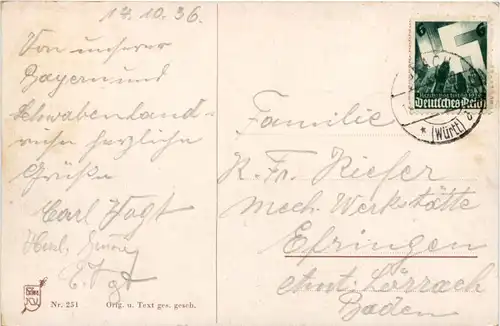 17.10.36.
Von unserer
Bayern und
Schwabenland-
reise herzliche
Grüße
Carl Vogt
E. Vogt
Nr. 251 Orig. u. Text ges. gesch.
6 6
Deutsches Reich
(Württ)
Familie
K. Fr. Kiefer
mech. Werkstätte
Efringen
Amt: Lörrach
Baden